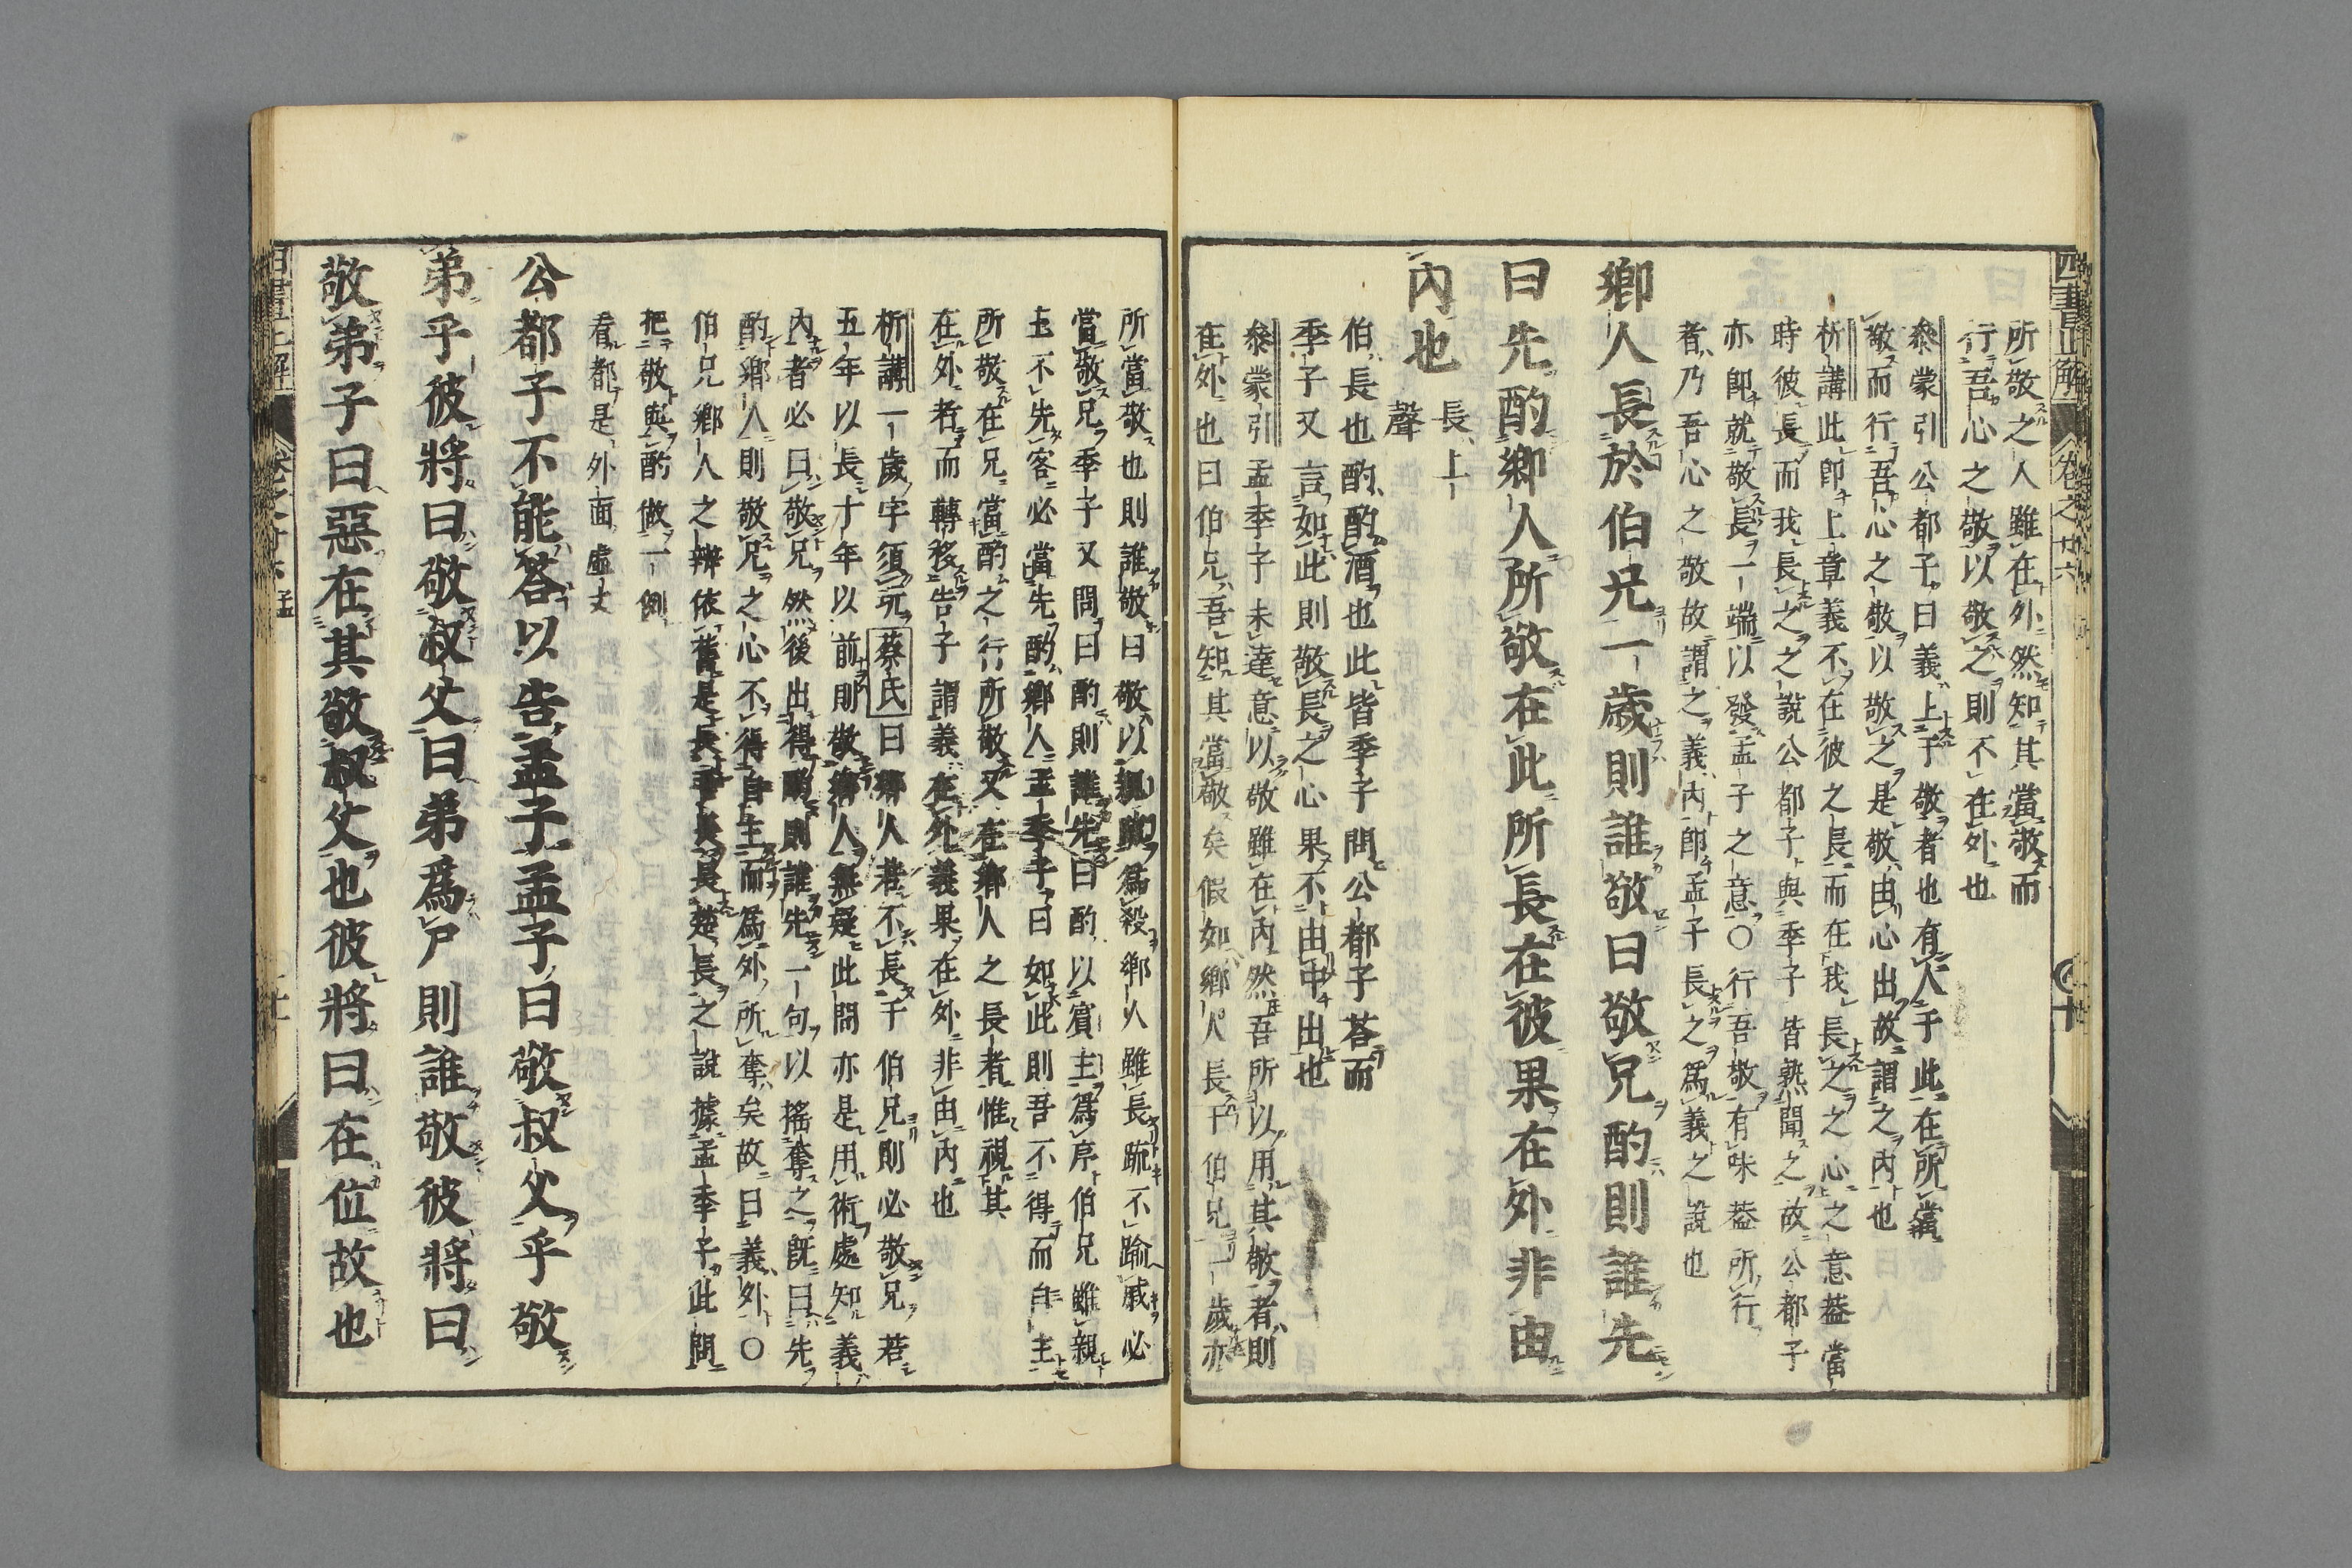 四書正解
卷之廿六
所敬之人雖在外然知其當敬而
行吾心之敬以敬之則不在外也
叅蒙引公都子曰義上于敬者也有人于此在所當
敬而行吾心之敬以敬之是敬由心出故謂之內也
析講此卽上章義不在彼之長而在我長之之心之意葢當
時彼長而我長之之說公都子與季子皆熟聞之故公都子
亦卽就敬長一端以發孟子之意○行吾敬有味葢所行
者乃吾心之敬故謂之義內卽孟子長之爲義之說也
鄉人長於伯兄一歲則誰敬曰敬兄酌則誰先
曰先酌鄉人所敬在此所長在彼果在外非由
內也
長上
聲
伯長也酌酌酒也此皆季子問公都子荅而
季子又言如此則敬長之心果不由中出也
叅蒙引孟季子未達意以敬雖在內然吾所以用其敬者則
在外也曰伯兄吾知其當敬矣假如鄉人長于伯兄一歲亦
所當敬也則誰敬曰敬以親踈爲殺鄉人雖長踈不踰戚必
當敬兄季子又問曰酌則誰先曰酌以賓主爲序伯兄雖親
主不先客必當先酌鄉人孟季子曰如此則吾不得而自主
所敬在兄當酌之行所敬又在鄉人之長者惟視其
在外者而轉移告子謂義在外義果在外非由內也
析講一歲字須玩蔡氏曰鄉人若不長于伯兄則必敬兄若
五年以長十年以前則敬鄉人無疑此問亦是用術處知義
內者必曰敬兄然後出得酌則誰先一句以搖奪之旣曰先
酌鄉人則敬兄之心不得自主而爲外所奪矣故曰義外○
伯兄鄉人之辨依舊是長吾長楚長之說據孟季子此問
把敬與酌做一例
看都是外面虛文
公都子不能荅以告孟子孟子曰敬叔父乎敬
弟乎彼將曰敬叔父曰弟爲尸則誰敬彼將曰
敬弟子曰惡在其敬叔父也彼將曰在位故也